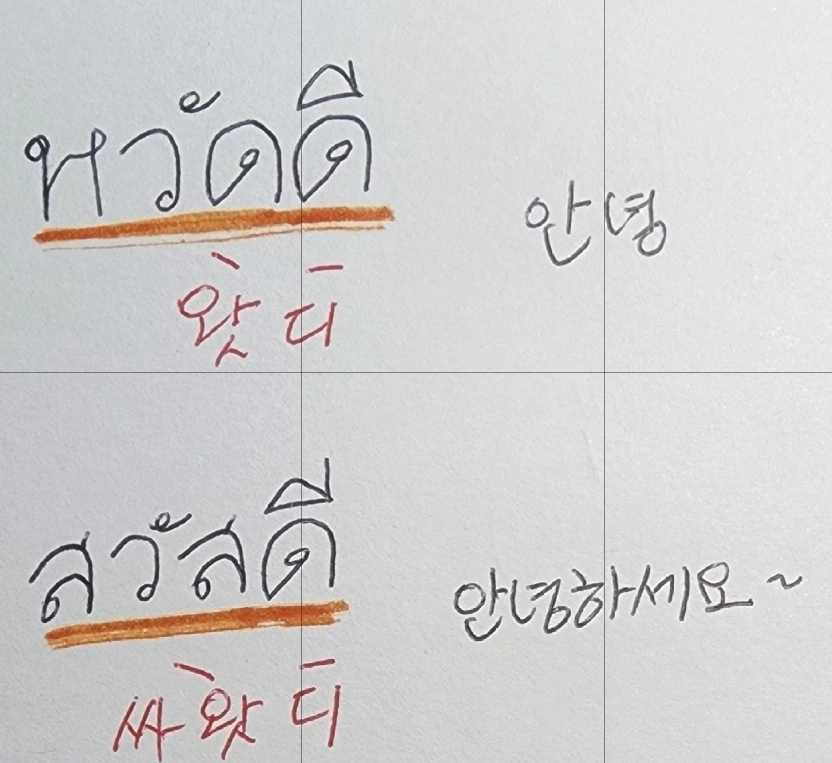 หวัดดี 안녕
왓 디
สวัสดี 안녕하세요~
싸 왓 디